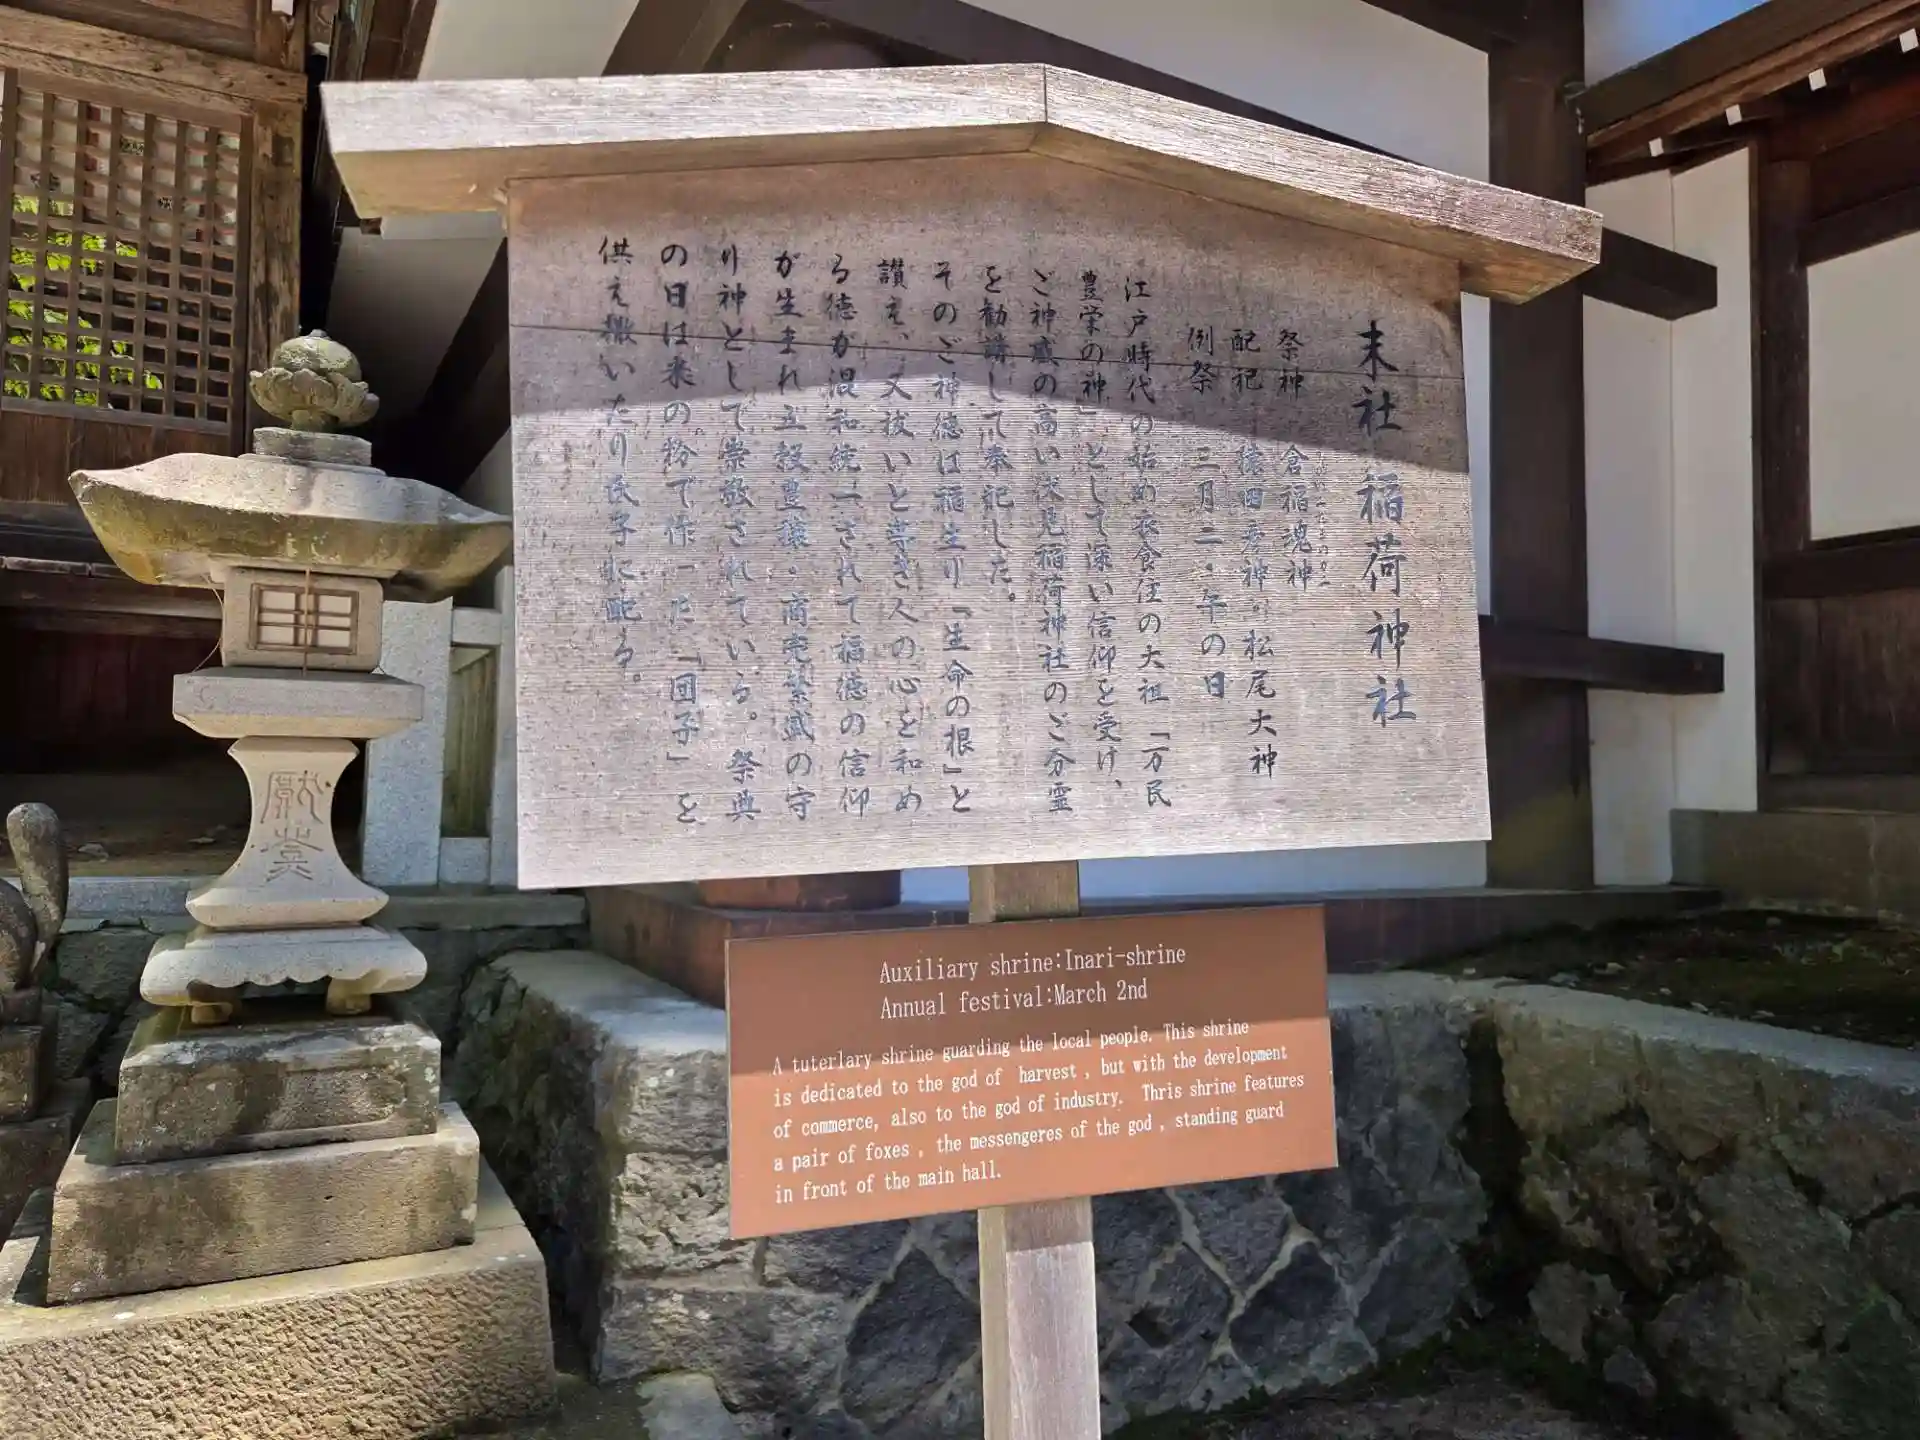 末社 稲荷神社
祭神 倉稲魂神
配祀 猿田彦神 松尾大神
例祭 三月二・午の日
江戸時代の始め衣食住の大祖「万民
豊栄の神」として深い信仰を受け、
ご神威の高い伏見稲荷神社のご分霊
を勧請して奉祀した。
そのご神徳は稲生り「生命の根」と
讃え、又扱いと尊き人の心を和め
る徳が混和統一されて福徳の信仰
が生まれ五穀豊穣・商売繁盛の守
り神として崇敬されている。祭典
の日は米の粉で作った「団子」を
供え撒いたり氏子に配る。
献燈
Auxiliary shrine:Inari-shrine
Annual festival:March 2nd
A tuterlary shrine guarding the local people. This shrine
is dedicated to the god of harvest , but with the development
of commerce, also to the god of industry. Thris shrine features
a pair of foxes , the messengeres of the god , standing guard
in front of the main hall.